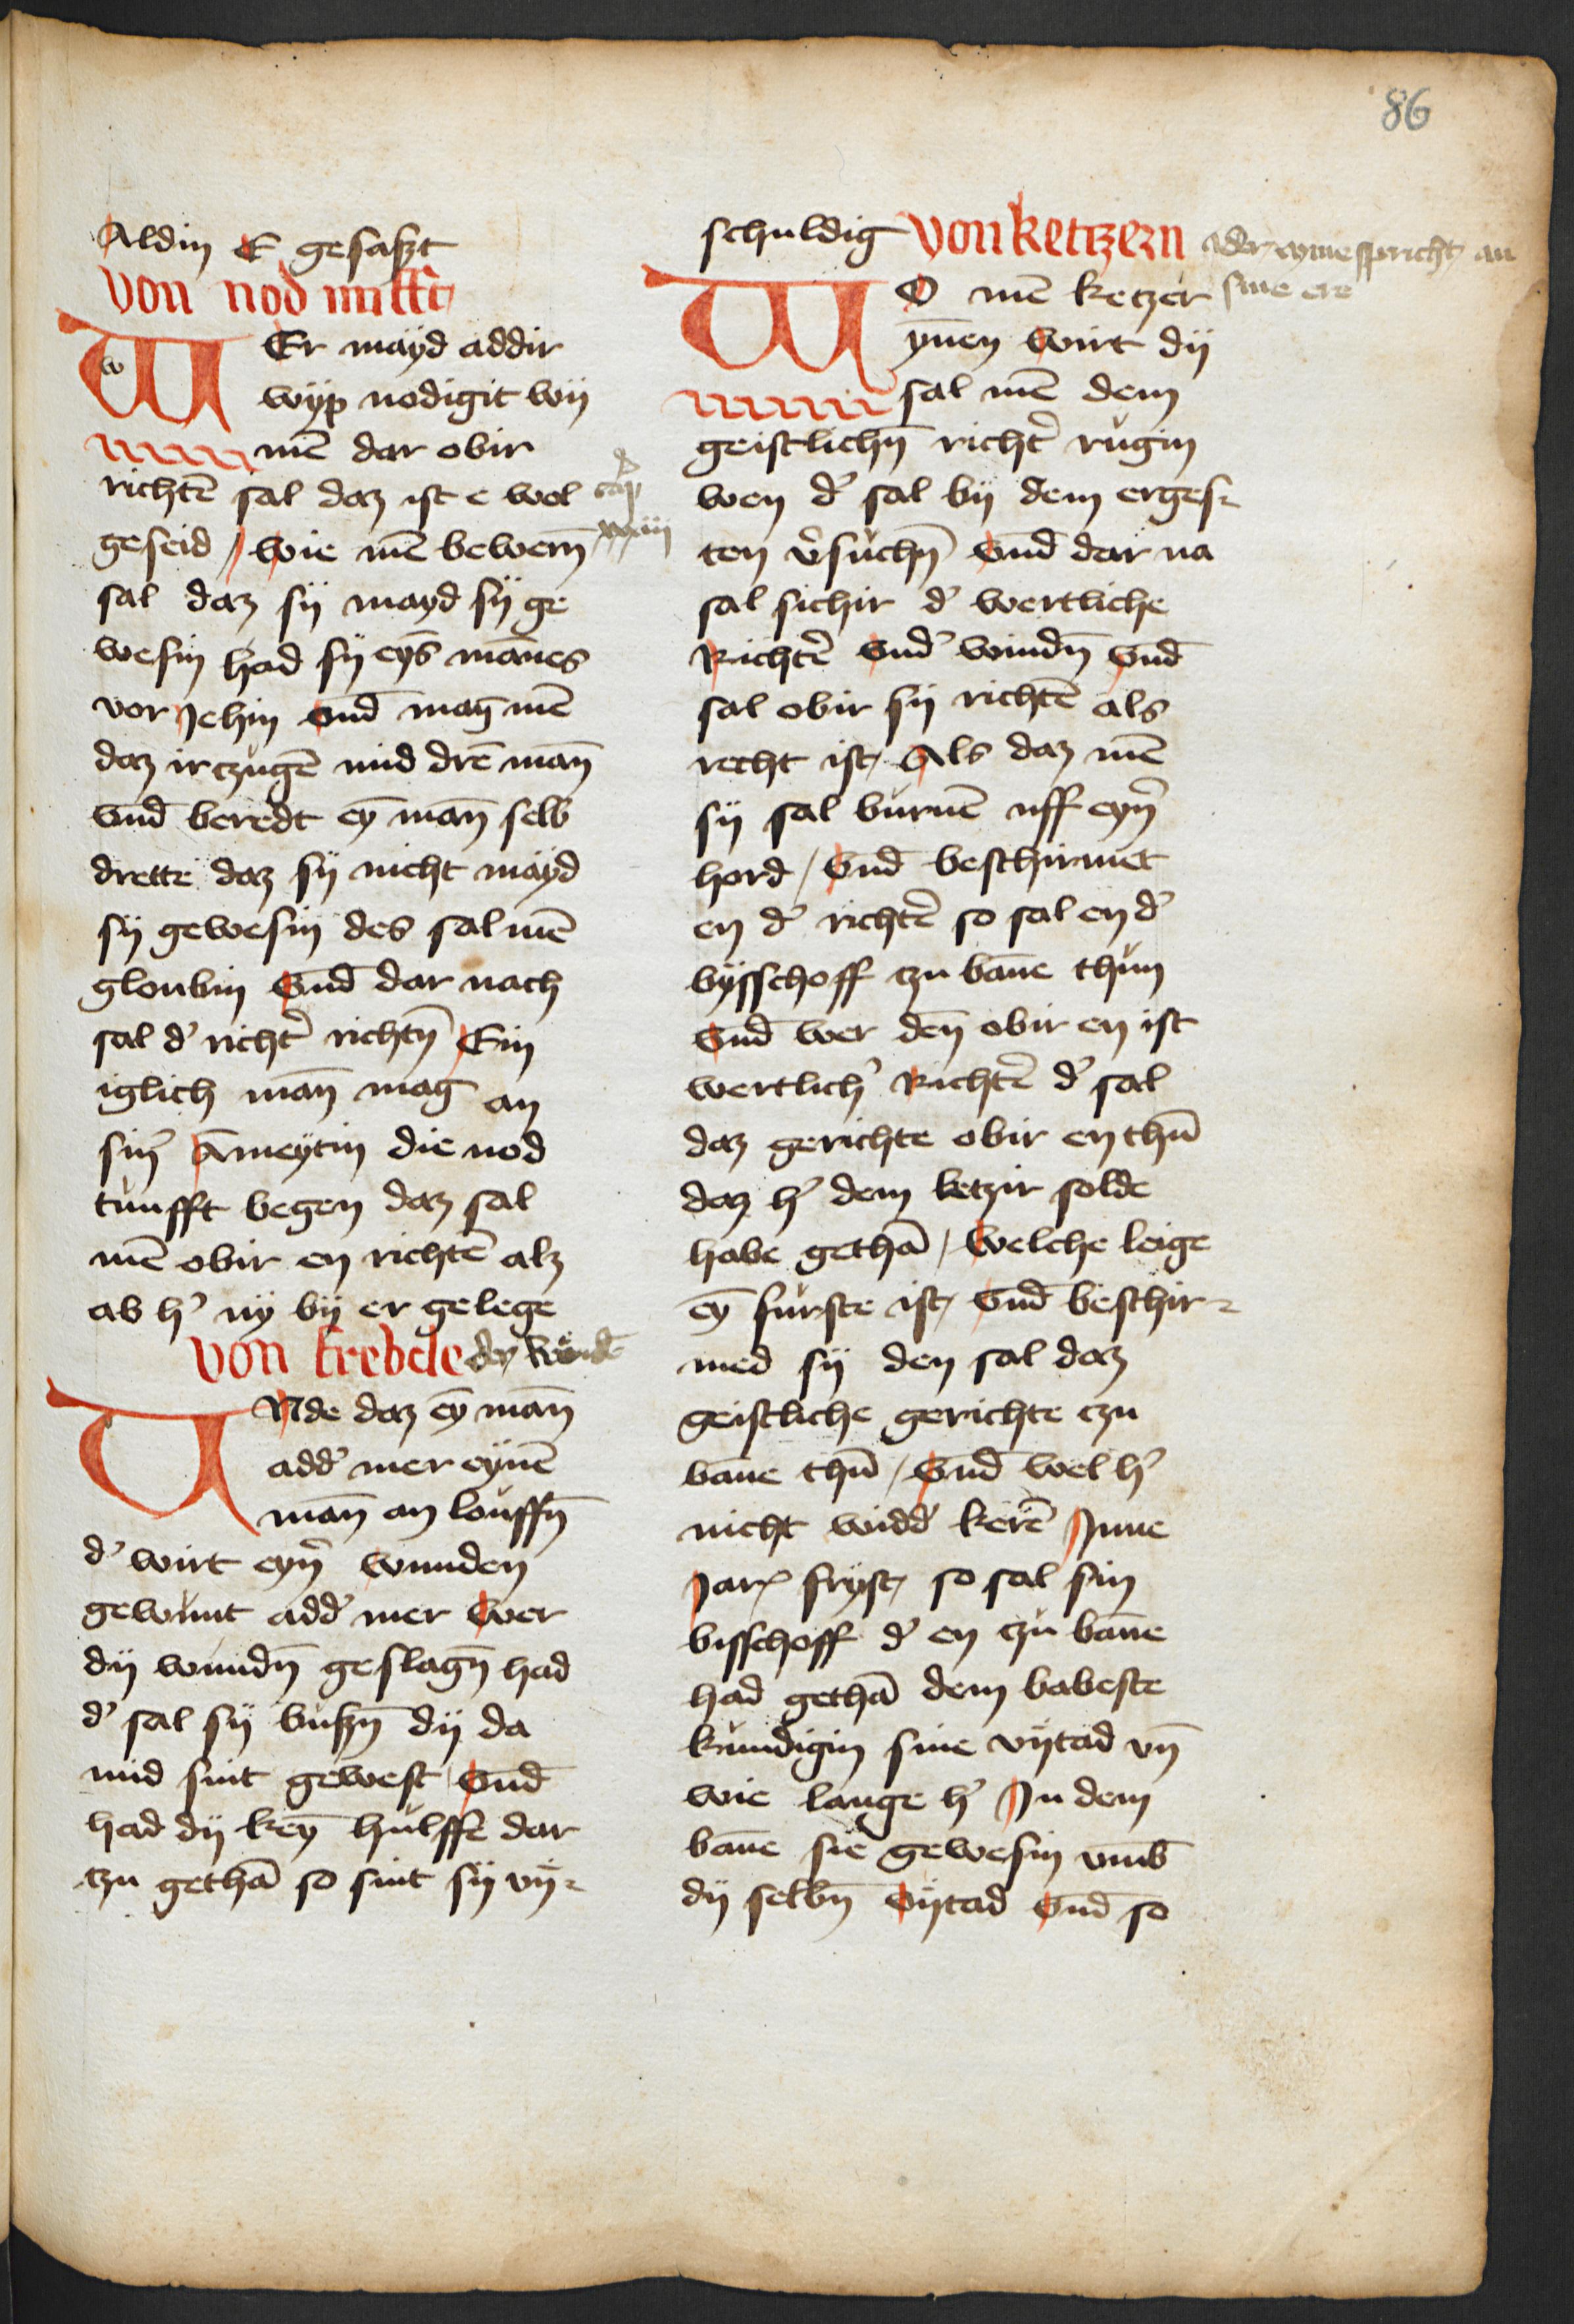 86
Aldin E gesaßt
Von nod nufft
WEr mayd addir
wyp nodigit wij
mē dar obir
richtē sal daz ist e wol
geseid / wie mē bewern̄
sal daz sij mayd sij ge
wesin had sij eys̄ mānes
vor Jehin vnd̄ man̄ mē
daz irczugē mid drē man̄
vnd̄ beredt eȳ man̄ selb
drette daz sij nicht mayd
sij gewesin des sal mē
gloubin vnd̄ dar nach
sal d' richt' richtn̄ Ein
iglich man̄ mag an
sin' Ameytin die nod
tunfft begen daz sal
mē obir en richtē alz
ab h' ny bij er gelege
Von frebele der wūdē
VNde daz eȳ man̄
add' mer eynē
man̄ an louffn̄
d' wirt eyn' wunden
gewunt add' mer wer
dij wundn̄ geslagn̄ had
d' sal sij bußn̄ dij da
mid sint gewest vnd̄
had dij keȳ hulffe dar
tzu gethā so sint sij vn⸗
cap
schuldig Von ketczern
ader eyme spricht an
sine ere
WO mē ketzer
yn̄en wirt dij
sal mē dem
geistlichn̄ richt' rugin
wen d' sal bij dem erges⸗
ten v'suchn̄ vnd̄ dar na
sal sichir d' wertliche
Richtē vnd' windn̄ vnd̄
sal obir sij richtē als
recht ist, Als daz mē
sij sal burnē uff eyn'
hord / vnd̄ beschirmet
en d' richtē so sal en d'
bysschoff tzu bāne thun
vnd̄ wer den̄ obir en ist
wertlich' Richtē d' sal
daz gerichte obir en thū
daz h' dem ketzir solde
habe gethā / welche leige
eȳ furste ist, vnd̄ beschir⸗
med sij den sal daz
geistliche gerichte czu
bāne thū / vnd̄ wel h'
nicht widd' kerē Jnne
Jars fryst, so sal sin
bisschoff d' en tzu bāne
had gethā dem babeste
kundigin sine vntad vn̄
wie lange h' Jn dem
bāne sie gewesin vmb̄
dij selbn̄ vntad vnd̄ so